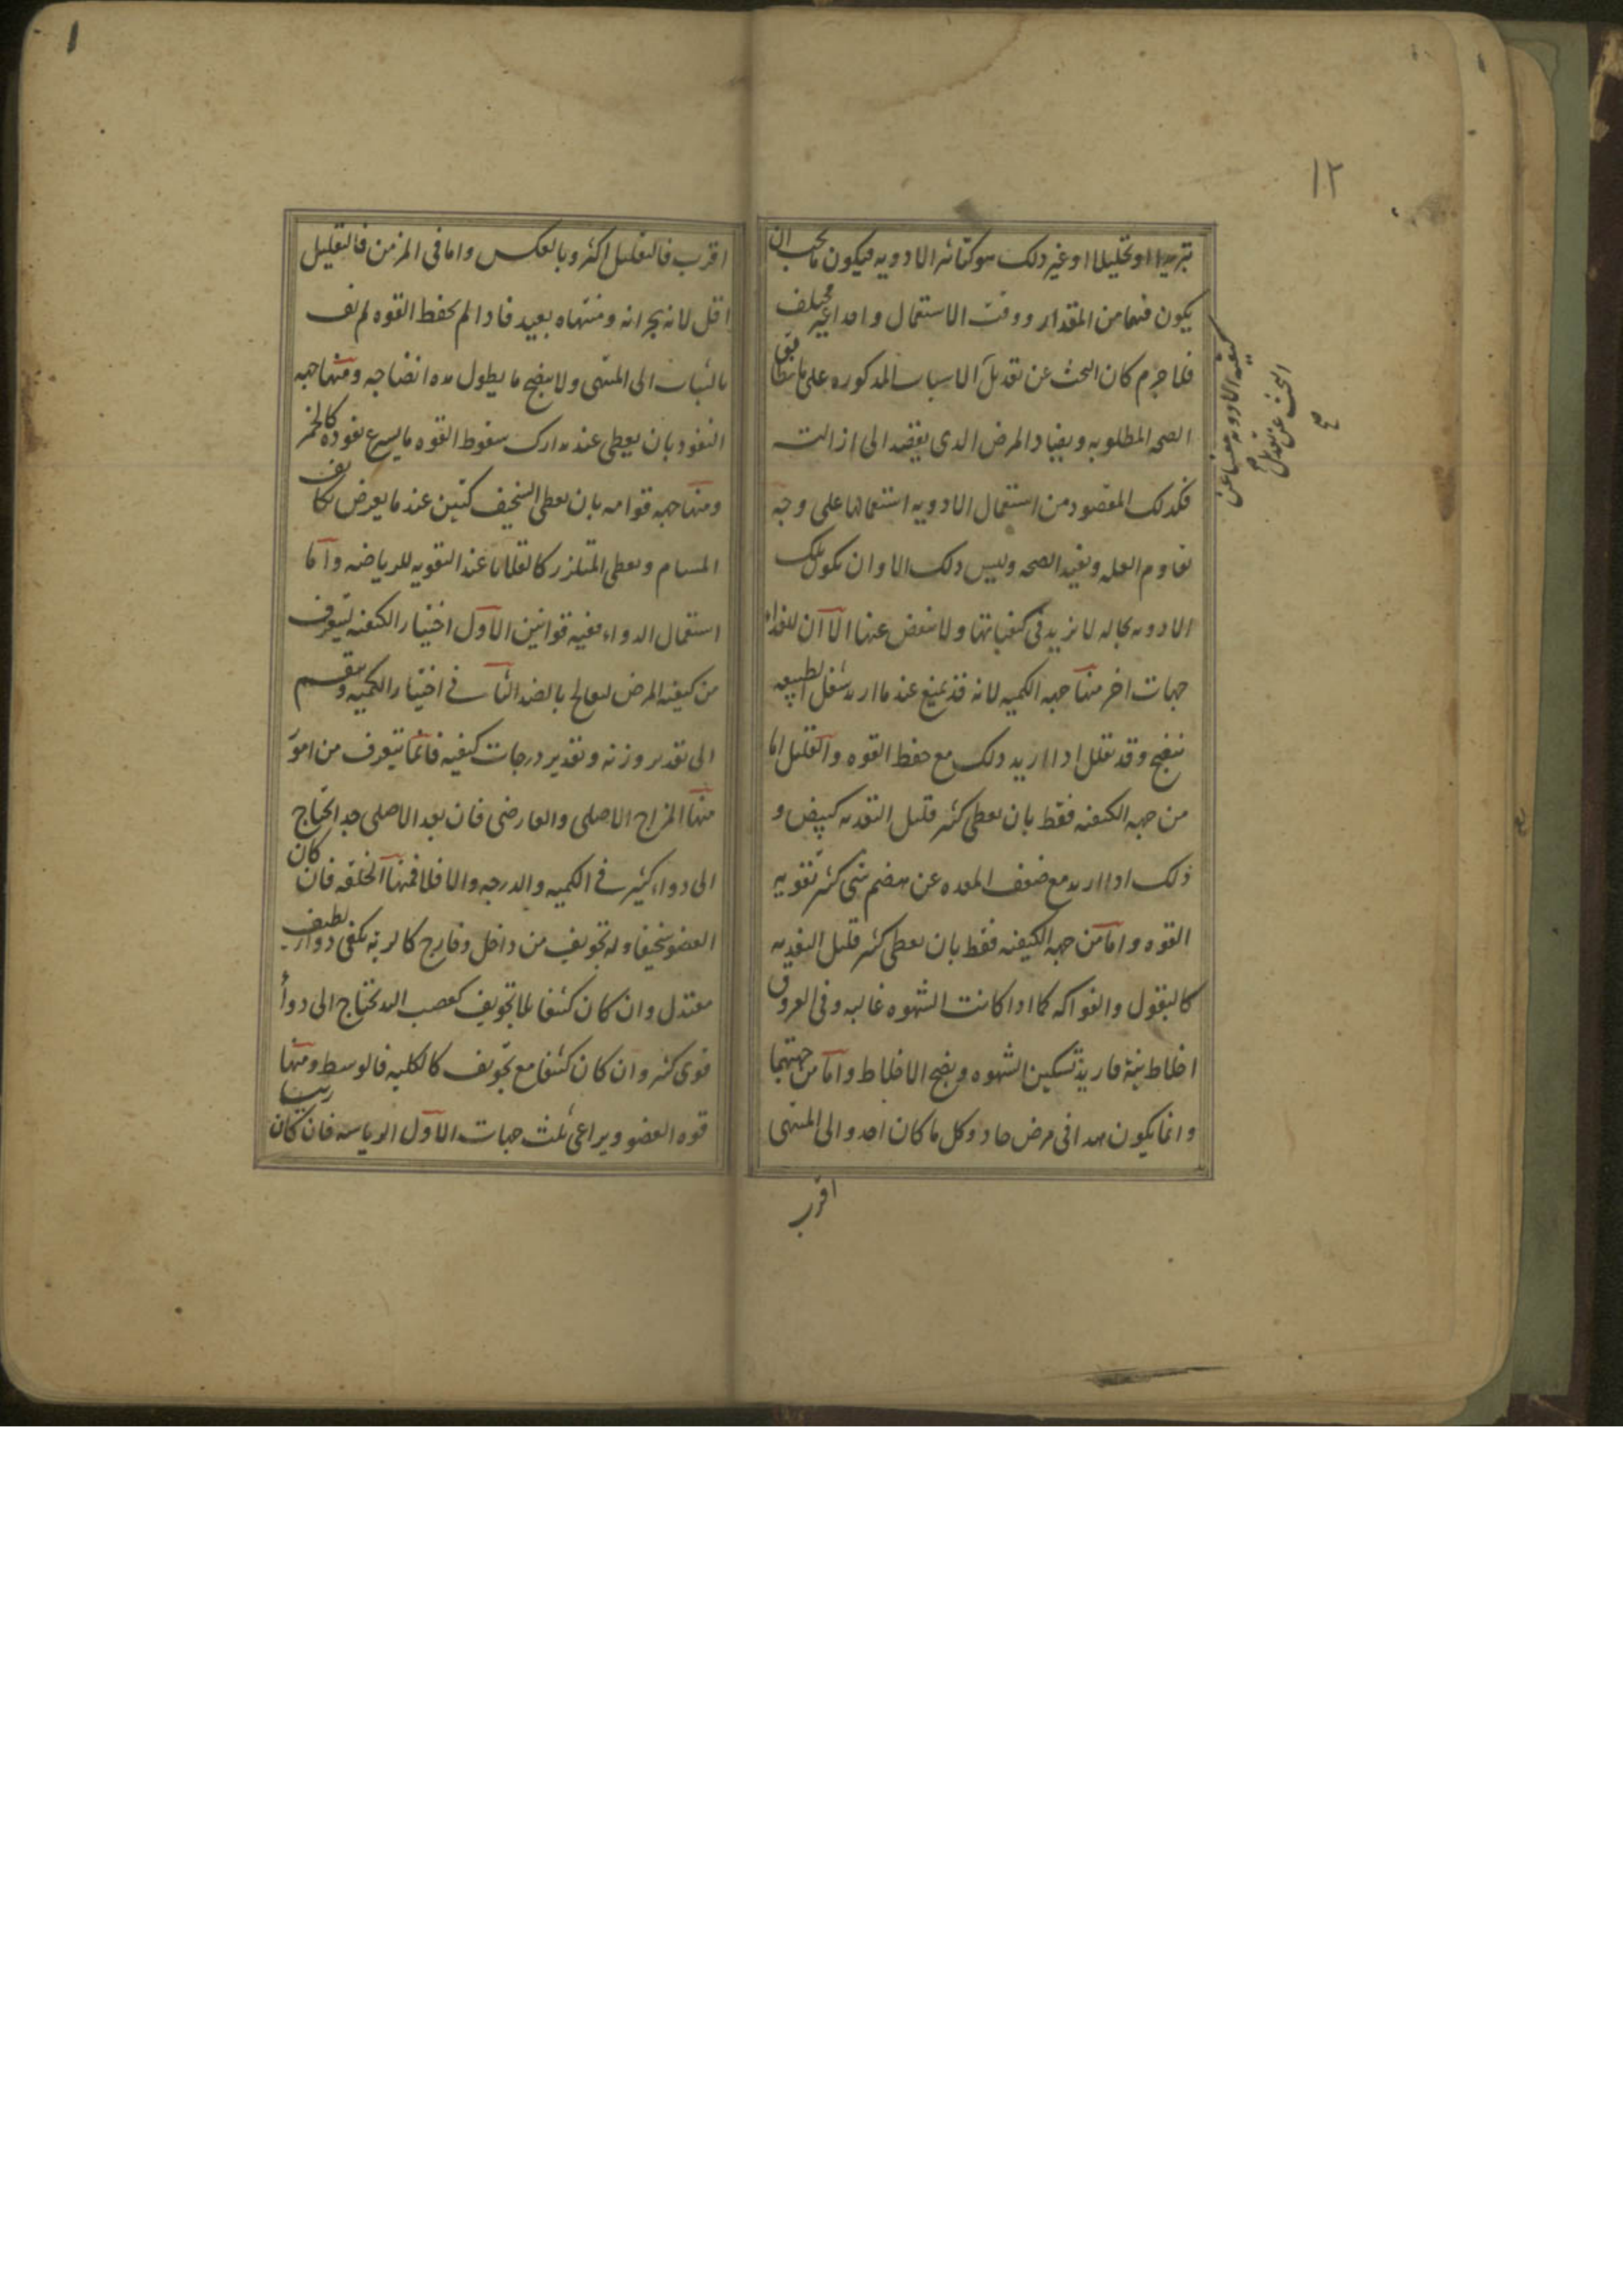 ١٢
تبريدا او تحليلا او غير ذلك هو كتاثير الادويه فيكون ما يجب ان
يكون فيها من المقدار ووقت الاستعمال واحدا غير مختلف
فلا جرم كان البحث عن تعديل الاسباب المذكوره على ما يطابق
الصحه المطلوبه ويضاد المرض الذى يقصد الى ازالته
فكذلك المقصود من استعمال الادويه استعمالها على وجه
تقاوم العله وتفيد الصحه وليس ذلك الا وان تكون تلك
الادويه بحاله لا تزيد فى كيفياتها ولا تنقص عنها الا ان للغذاء
جهات اخر منها جهه الكميه لانه قد يمنع عند ما اريد شغل الطبيعه
بنضج وقد يقلل اذا اريد ذلك مع حفظ القوه والتقليل اما
من جهه الكيفيه فقط بان يعطى كثير قليل التغذيه كبيض و
ذلك اذا اريد مع ضعف المعده عن هضم شى كثير تقويه
القوه واما من جهه الكيفيه فقط بان يعطى كثير قليل التغذيه
كالبقول والفواكه كما اذا كانت الشهوه غالبه وفى العروق
اخلاط نيئة فاريد تسكين الشهوه ونضج الاخلاط واما من جهتهما
وانما يكون هذا فى مرض حاد وكل ما كان احد والى المنتهى
اقرب
كيفيه الادويه مغنيا عن
البحث عن تعديل
صح
اقرب فالتقليل اكثر وبالعكس واما فى المزمن فالتقليل
اقل لانه بحرانه ومنتهاه بعيد فاذا لم يحفظ القوه لم تف
بالثبات الى المنتهى ولا ينضج ما يطول مده انضاجه ومنها جهه
النفوذ بان يعطى عند تدارك سقوط القوه ما يسرع نفوذه كالخمر
ومنها جهه قوامه بان يعطى السخيف كتين عند ما يعرض تكاثف
المسام ويعطى المتلزز كالقلايا عند التقويه للرياضه واما
استعمال الدواء ففيه قوانين الاول اختيار الكيفيه ليتعرف
من كيفيه المرض ليعالج بالضد الثانى فى اختيار الكميه وينقسم
الى تقدير وزنه وتقدير درجات كيفيه فانما يتعرف من امور
منها المزاج الاصلى والعارضى فان بعد الاصلى جدا يحتاج
الى دواء كثير فى الكميه والدرجه والا فلا فمنها الخلقه فان كان
العضو سخيفا وله تجويف من داخل وخارج كالريه يكفى دواء لطيف
معتدل وان كان كثيفا بلا تجويف كعصب اليد يحتاج الى دواء
قوى كثير وان كان كثيفا مع تجويف كالكليه فالوسط ومنها
قوه العضو ويراعى ثلث جهات الاول الرياسه فان كان رئيسا